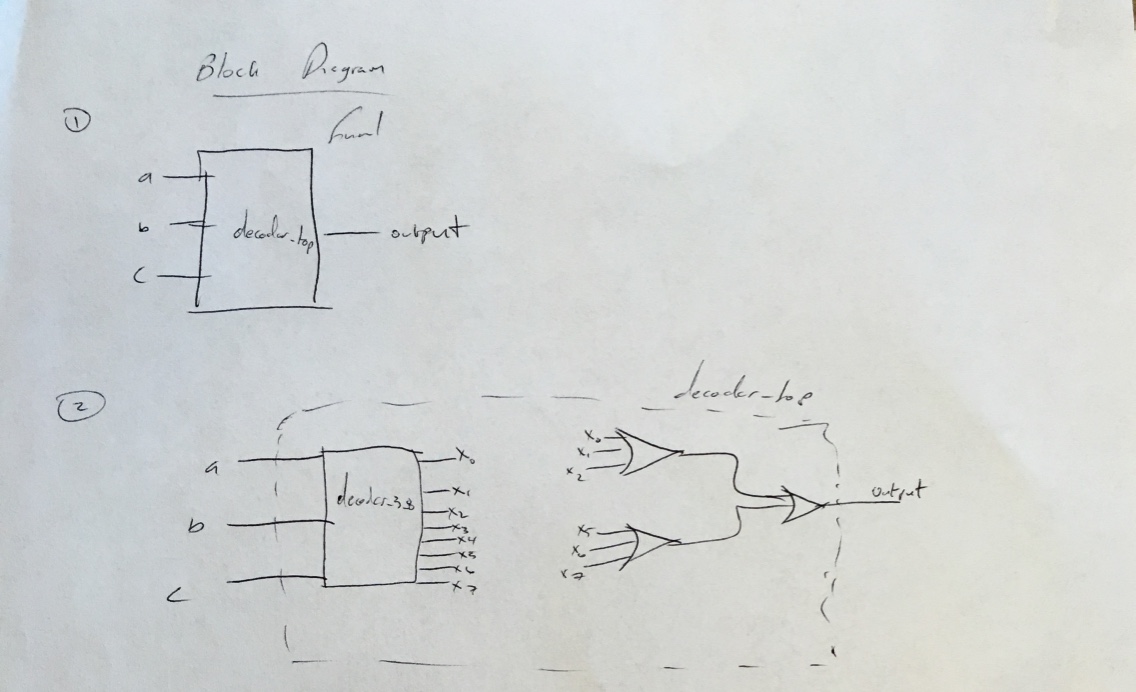 Block Diagram
①
a
b
c
decoder_top
output
②
decoder_top
a
b
c
decoder_38
x0
x1
x2
x3
x4
x5
x6
x7
x0
x1
x2
x5
x6
x7
output